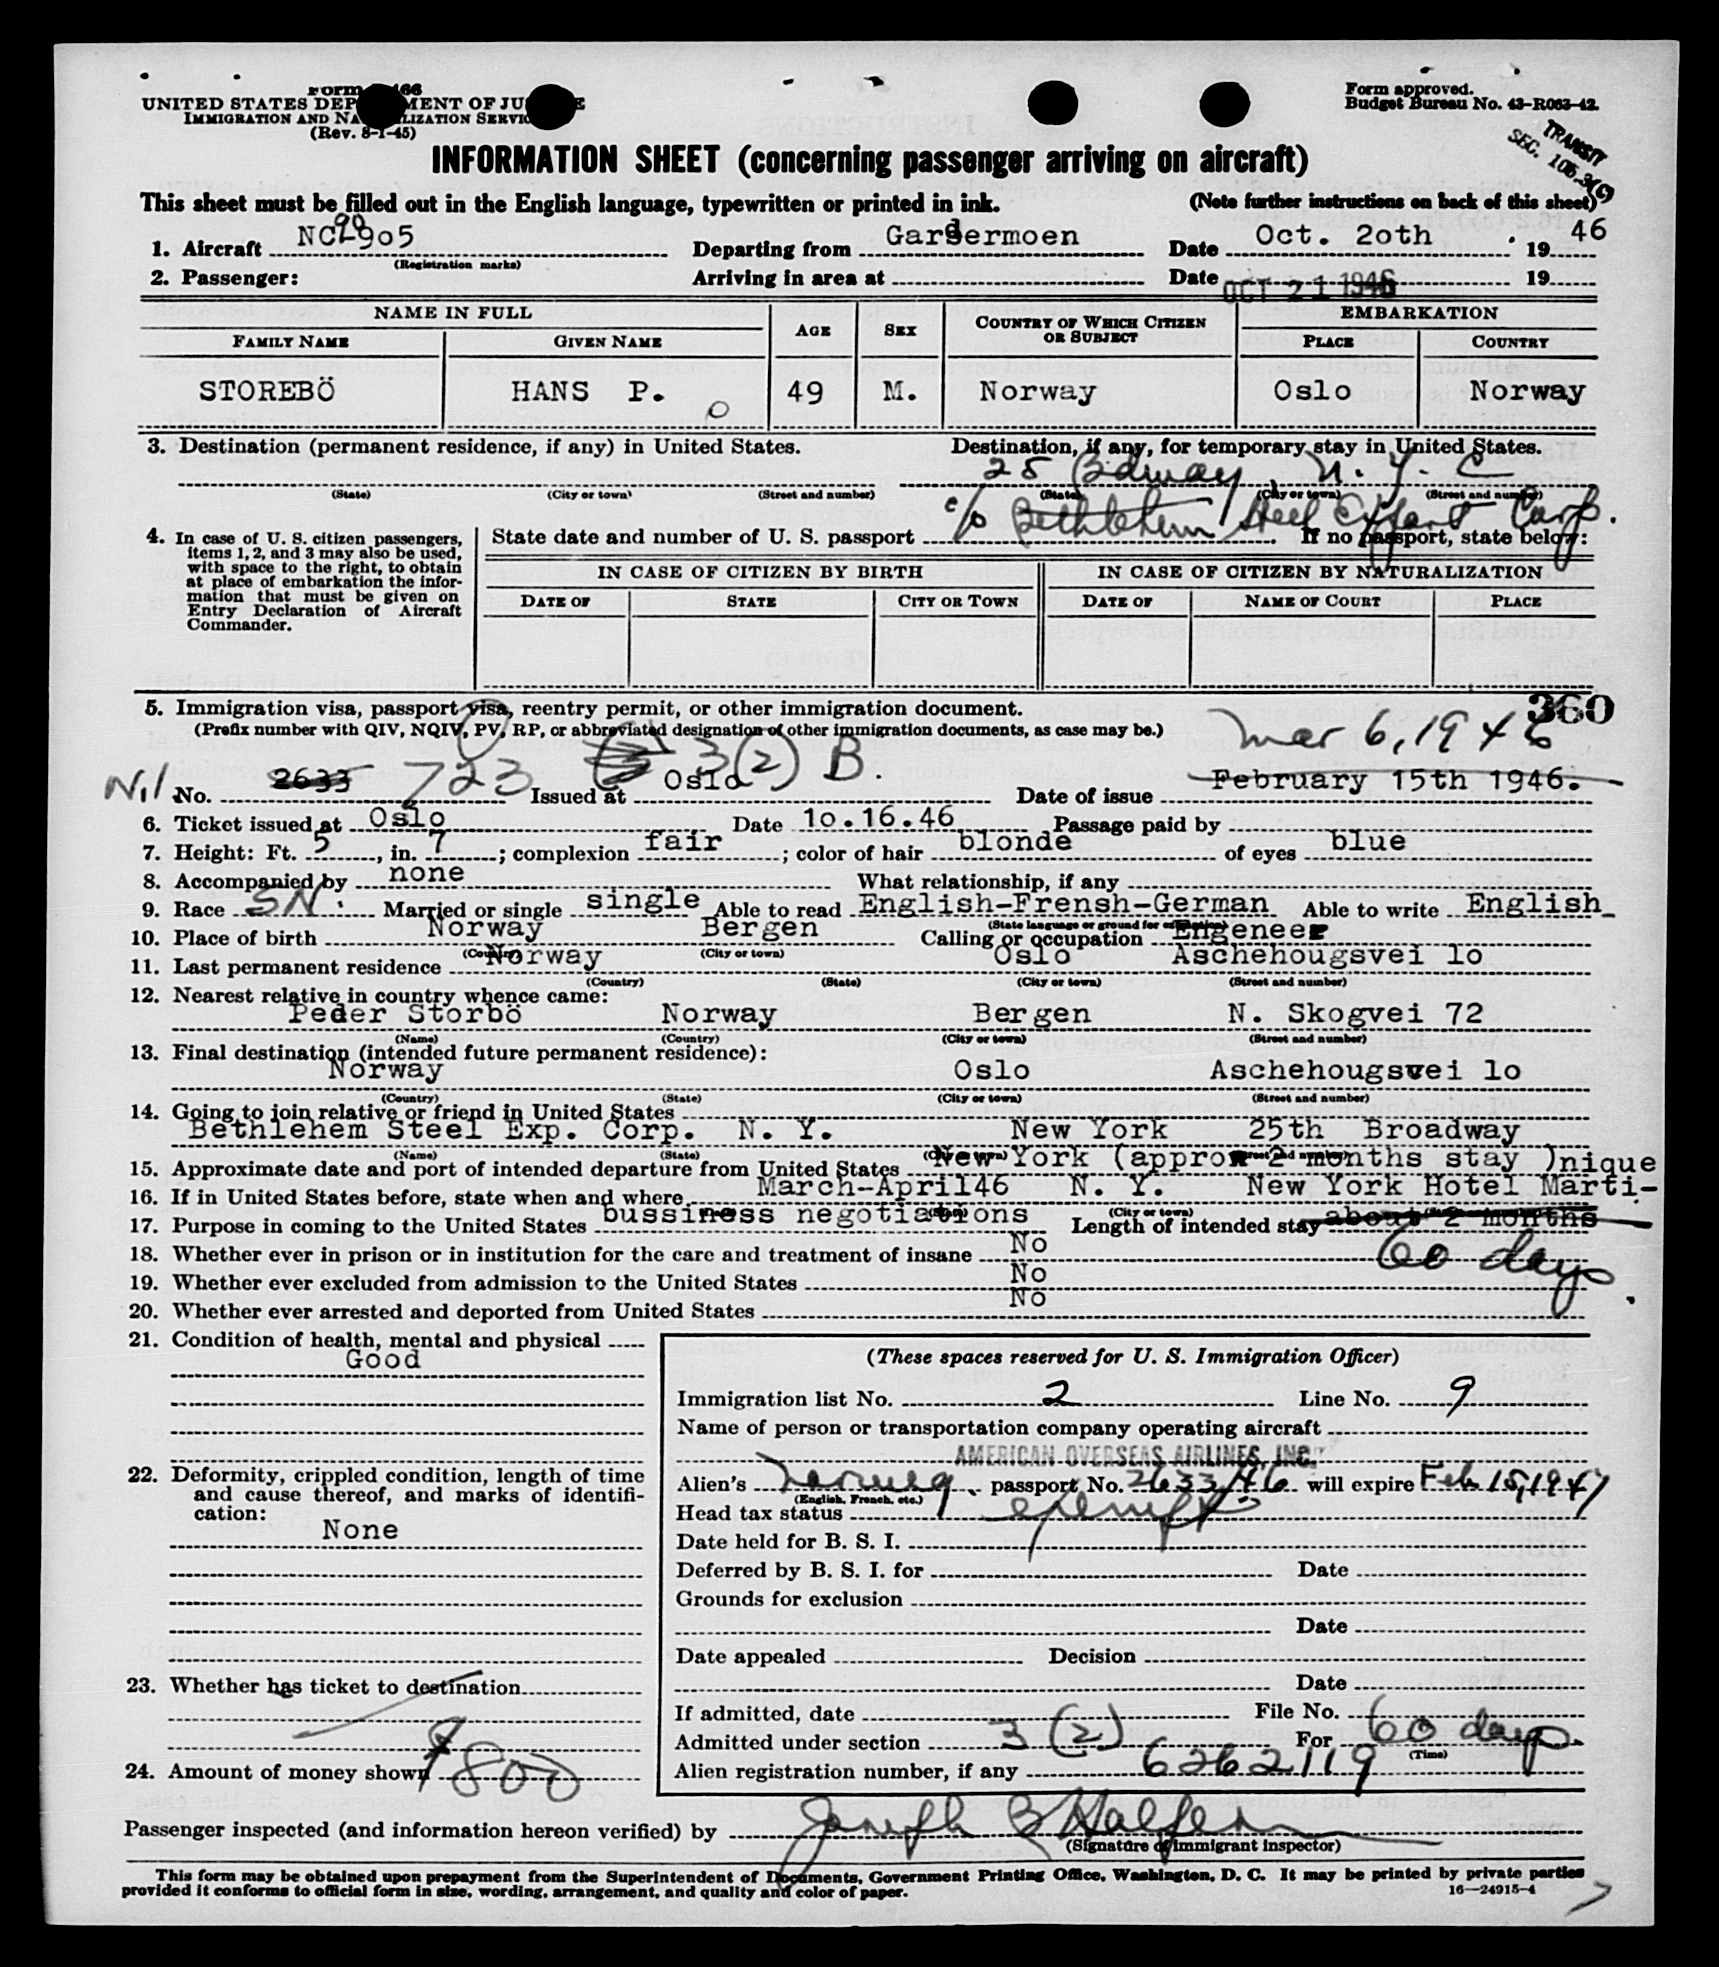 Form 466
UNITED STATES DEP MENT OF JU E
IMMIGRATION AND NA LIZATION SERVIC
(Rev. 8-1-45)
Form approved.
Budget Bureau No. 43-R063-42.
TRANSIT
SEC. 105.3(C)
INFORMATION SHEET (concerning passenger arriving on aircraft)
This sheet must be filled out in the English language, typewritten or printed in ink. (Note further instructions on back of this sheet)
1. Aircraft NC-90905 Departing from Gardermoen Date Oct. 2oth . 1946
(Registration marks)
2. Passenger: Arriving in area at Date OCT 21 1946 19
NAME IN FULL AGE SEX COUNTRY OF WHICH CITIZEN OR SUBJECT EMBARKATION
FAMILY NAME GIVEN NAME PLACE COUNTRY
STOREBÖ HANS P. 49 M. Norway Oslo Norway
O
3. Destination (permanent residence, if any) in United States. Destination, if any, for temporary stay in United States.
25 Bdway, N.Y.C
(State) (City or town) (Street and number) (State) (City or town) (Street and number)
c/o Bethlehem Steel Export Corp.
4. In case of U. S. citizen passengers, items 1, 2, and 3 may also be used, with space to the right, to obtain at place of embarkation the information that must be given on Entry Declaration of Aircraft Commander.
State date and number of U. S. passport If no passport, state below:
IN CASE OF CITIZEN BY BIRTH IN CASE OF CITIZEN BY NATURALIZATION
DATE OF STATE CITY OR TOWN DATE OF NAME OF COURT PLACE
5. Immigration visa, passport visa, reentry permit, or other immigration document. 360
(Prefix number with QIV, NQIV, PV, RP, or abbreviated designation of other immigration documents, as case may be.) Mar 6, 1946
N.I No. 2633 723 Issued at Oslo 3(2) B. Date of issue February 15th 1946.
6. Ticket issued at Oslo Date 1o.16.46 Passage paid by
7. Height: Ft. 5, in. 7; complexion fair; color of hair blonde of eyes blue
8. Accompanied by none What relationship, if any
9. Race SN. Married or single single Able to read English-Frensh-German Able to write English
(State language or ground for exemption)
10. Place of birth Norway Bergen Calling or occupation Engeneer
(Country) (City or town)
11. Last permanent residence Norway Oslo Aschehougsvei 1o
(Country) (State) (City or town) (Street and number)
12. Nearest relative in country whence came:
Peder Storbö Norway Bergen N. Skogvei 72
(Name) (Country) (City or town) (Street and number)
13. Final destination (intended future permanent residence):
Norway Oslo Aschehougsvei 1o
(Country) (State) (City or town) (Street and number)
14. Going to join relative or friend in United States
Bethlehem Steel Exp. Corp. N. Y. New York 25th Broadway
(Name) (State) (City or town) (Street and number)
15. Approximate date and port of intended departure from United States New York (approx 2 months stay )nique
16. If in United States before, state when and where March-April46 N. Y. New York Hotel Marti-
(City or town)
17. Purpose in coming to the United States bussiness negotiations Length of intended stay about 2 months
60 days.
18. Whether ever in prison or in institution for the care and treatment of insane No
19. Whether ever excluded from admission to the United States No
20. Whether ever arrested and deported from United States No
21. Condition of health, mental and physical
Good
22. Deformity, crippled condition, length of time and cause thereof, and marks of identification:
None
23. Whether has ticket to destination
24. Amount of money shown $800
(These spaces reserved for U. S. Immigration Officer)
Immigration list No. 2 Line No. 9
Name of person or transportation company operating aircraft
AMERICAN OVERSEAS AIRLINES, INC.
Alien's Norweg. passport No. 2633/46 will expire Feb 15, 1947
(English, French, etc.)
Head tax status exempt
Date held for B. S. I.
Deferred by B. S. I. for Date
Grounds for exclusion
Date
Date appealed Decision
Date
If admitted, date File No.
Admitted under section 3 (2) For 60 days.
(Time)
Alien registration number, if any 6262119
Passenger inspected (and information hereon verified) by Joseph B Halfern
(Signature of immigrant inspector)
This form may be obtained upon prepayment from the Superintendent of Documents, Government Printing Office, Washington, D. C. It may be printed by private parties
provided it conforms to official form in size, wording, arrangement, and quality and color of paper. 16—24915-4